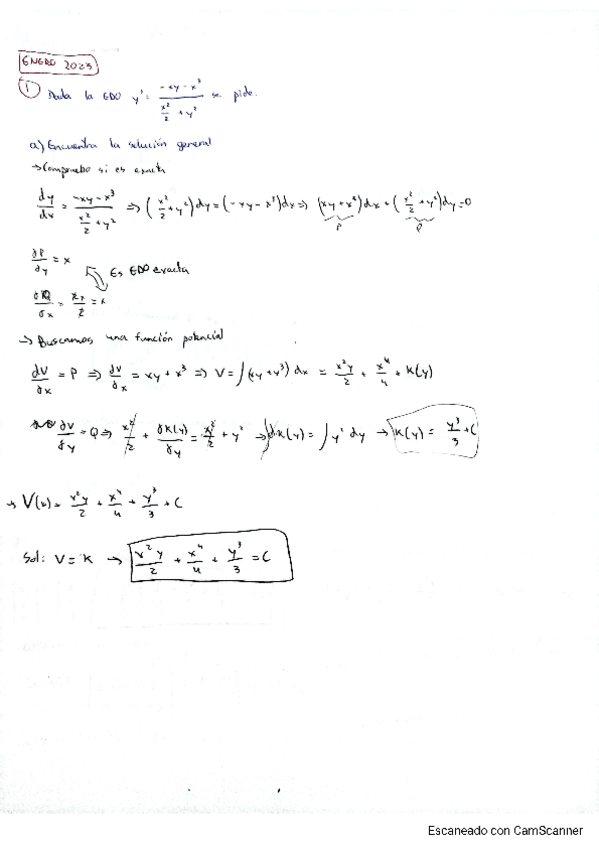 ENERO 2023
① Dada la EDO y' = (-xy - x³)/(x²/2 + y²) se pide:
a) Encuentra la solución general
→ Compruebo si es exacta
dy/dx = (-xy - x³)/(x²/2 + y²) ⇒ (x²/2 + y²) dy = (-xy - x³) dx ⇒ (xy + x³) dx + (x²/2 + y²) dy = 0
P Q
∂P/∂y = x
Es EDO exacta
∂Q/∂x = 2x/2 = x
→ Buscamos una función potencial
dV/∂x = P ⇒ ∂V/∂x = xy + x³ ⇒ V = ∫(xy + y³) dx = x²y/2 + x⁴/4 + K(y)
∂V/∂y = Q ⇒ x²/2 + ∂K(y)/∂y = x²/2 + y² → ∫dK(y) = ∫y² dy → K(y) = y³/3 + C
→ V(x) = x²y/2 + x⁴/4 + y³/3 + C
Sol: V = K → x²y/2 + x⁴/4 + y³/3 = C
Escaneado con CamScanner